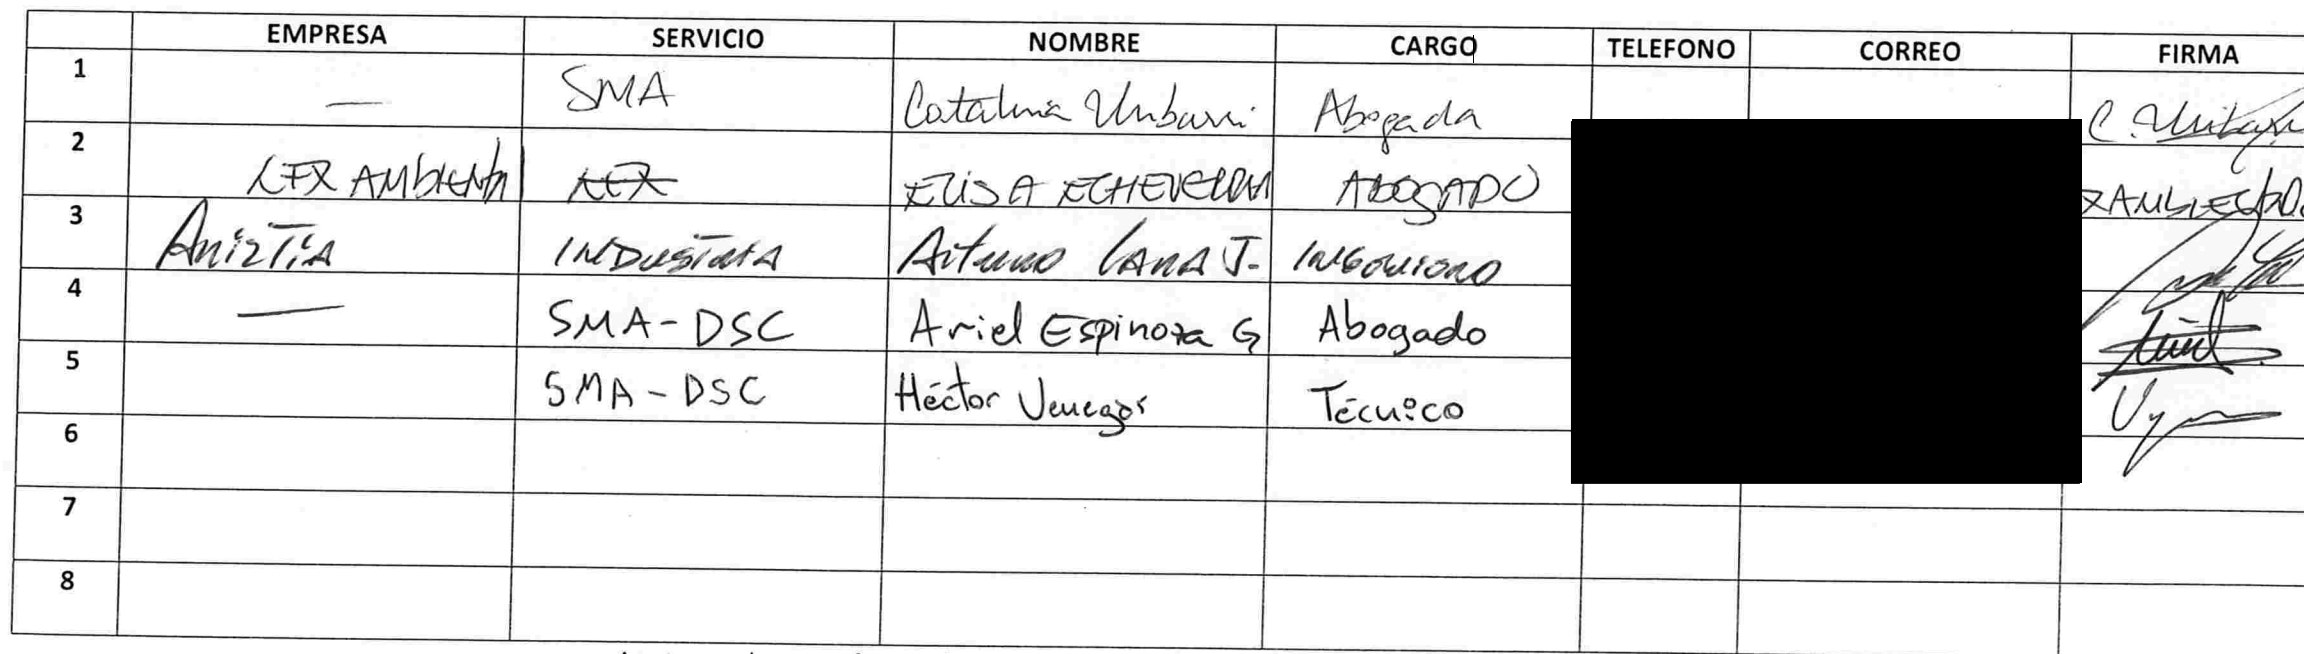 EMPRESA SERVICIO NOMBRE CARGO TELEFONO CORREO FIRMA
1 — SMA Catalina Uribarri Abogada C. Uribarri
2 LEX AMBIENTAL LEX ELISA ECHEVERRIA ABOGADO
3 INDUSTRIA Arturo J. INGENIERO
4 — SMA-DSC Ariel Espinoza G Abogado
5 SMA-DSC Héctor Venegas Técnico
6
7
8